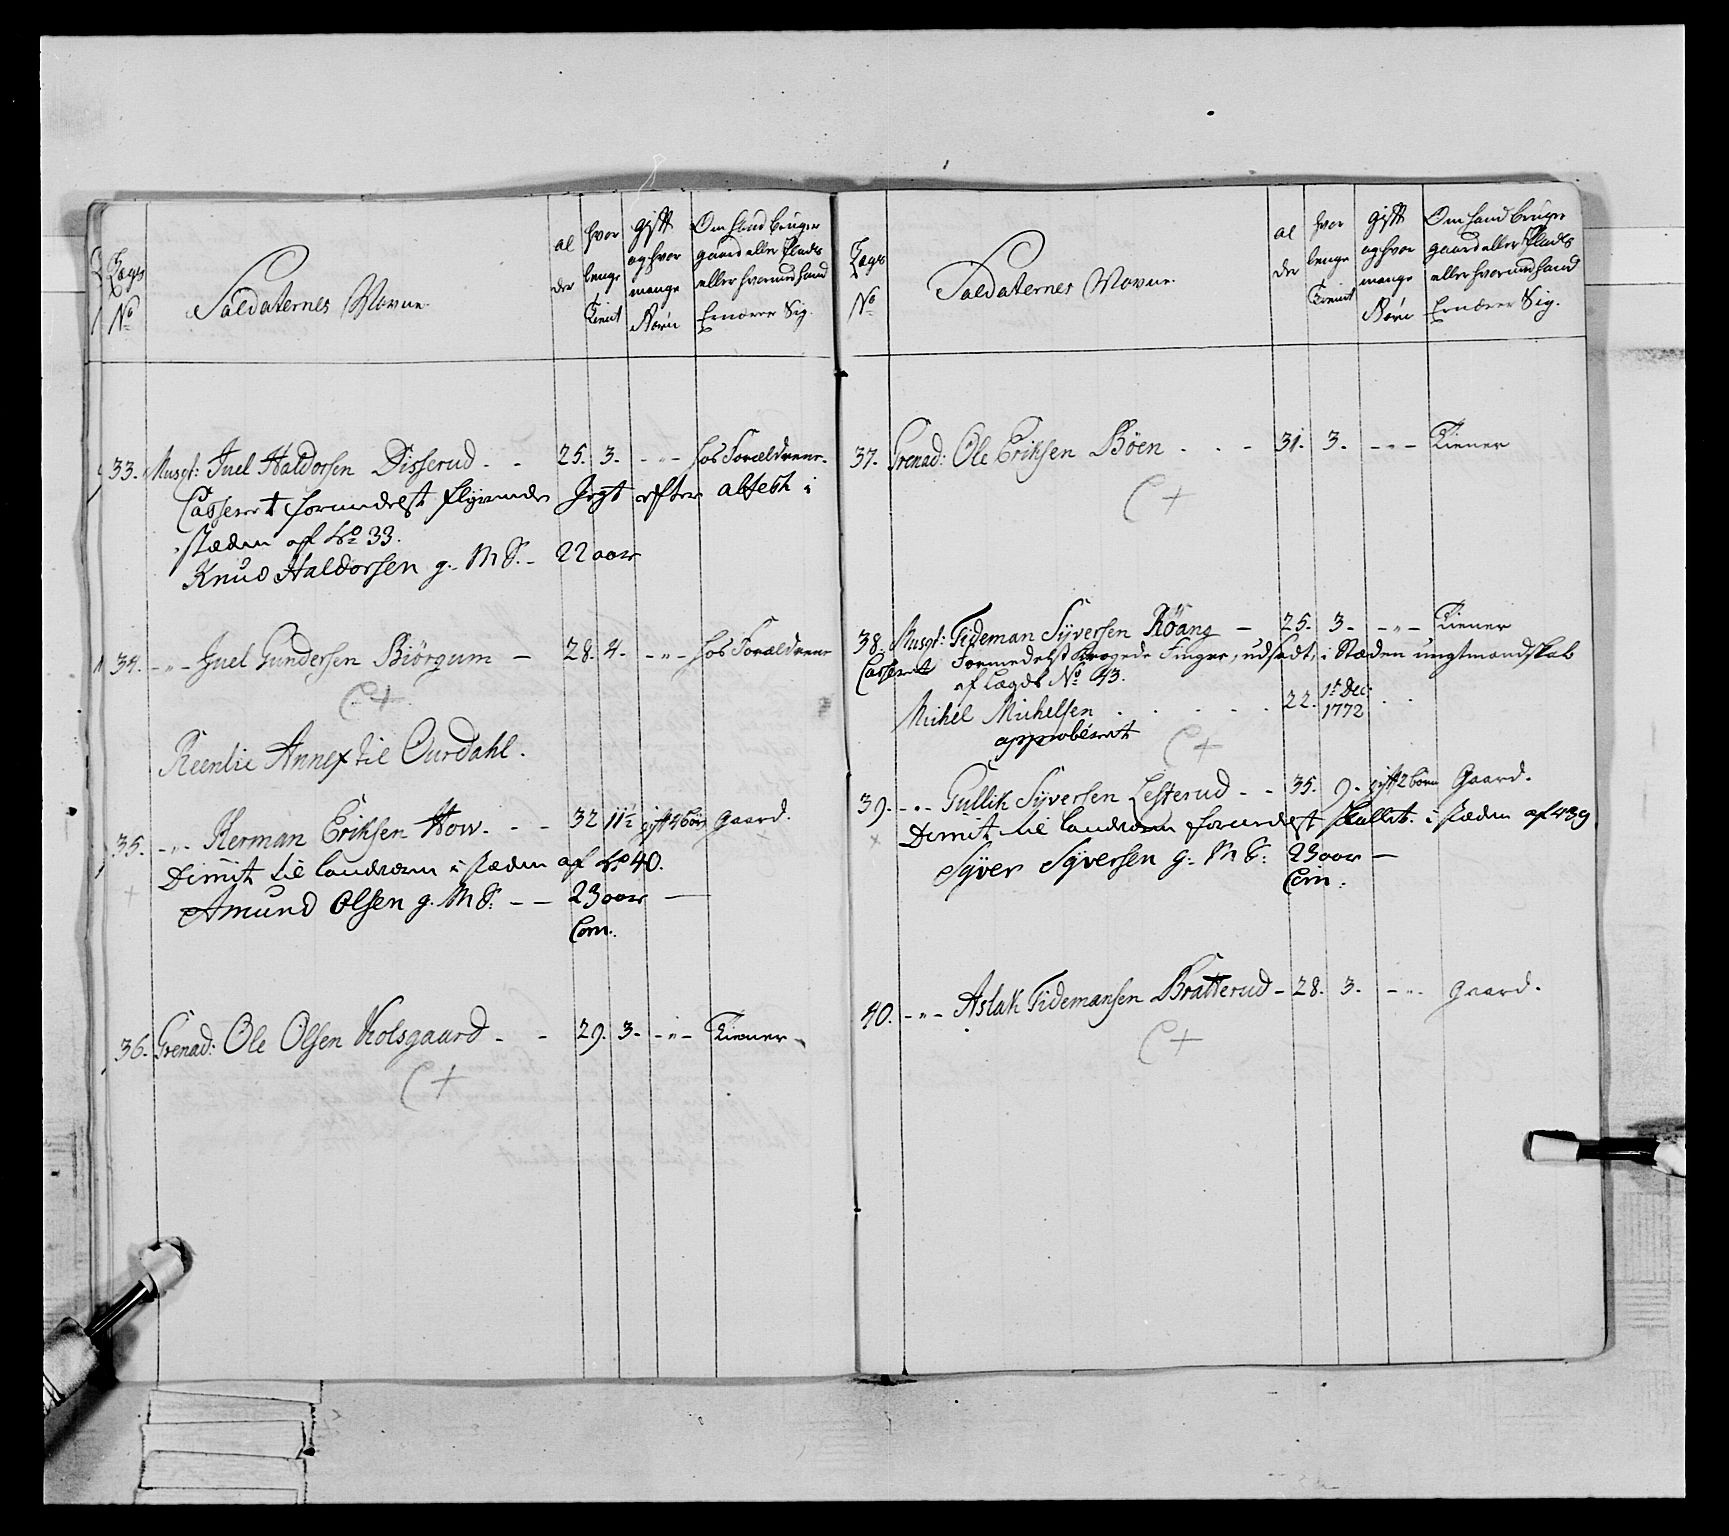 Lægs No
Soldaternes Navne.
al der
hvor lenge Tient
gift og hvor mange Børn
Om hand bruger gaard eller Plads eller hvormed hand Ernærer Sig.
33. Musqt: Juel Haldorsen Disserud. - - 25. 3. - " - hos Forældrene.
Casseret formedelst flyvende Gigt efter attest i
stæden af No 33.
Knud Haldorsen g. M S. - 22 aar
34. - " - Juel Gundersen Biörgum - 28. 4. - " - hos Forældrene
C+
Reenlie Annex til Ourdahl.
35. - " - Herman Eriksen How. - - 32 11½ gift 4 börn Gaard.
Dimit til landværn i stæden af No 40.
Amund Olsen g. M S: - - 23 aar —
Com:
36. Grenad: Ole Olsen Kolsgaard - - 29. 3. - " - Tiener
C+
Lægs No
Soldaternes Navne.
al der
hvor lenge Tient
gift og hvor mange Børn
Om hand bruger gaard eller Plads eller hvormed hand Ernærer Sig.
37. Grenad: Ole Eriksen Böen . . - 31. 3. - " - Tiener
C+
38. Musqt: Tideman Syversen Röang - 25. 3. - " - Tiener
Casseret Formedelst Krogede Finger, udsadt, i Stæden ungtmandskab
af Lægds No 43.
Michel Michelsen . . . . . 22. 1t Dec: 1772 . .
approbèret
C+
39. - " - Gullik Syversen Lesterud - - 35. 9. gift 2 börn Gaard.
Dimit til landværn formedelst skallet. i stæden af No 39
Syver Syversen g. M S: 23 aar —
Com:
40. - " - Aslak Tidemansen Bratterud - 28. 3. - " - gaard.
C+